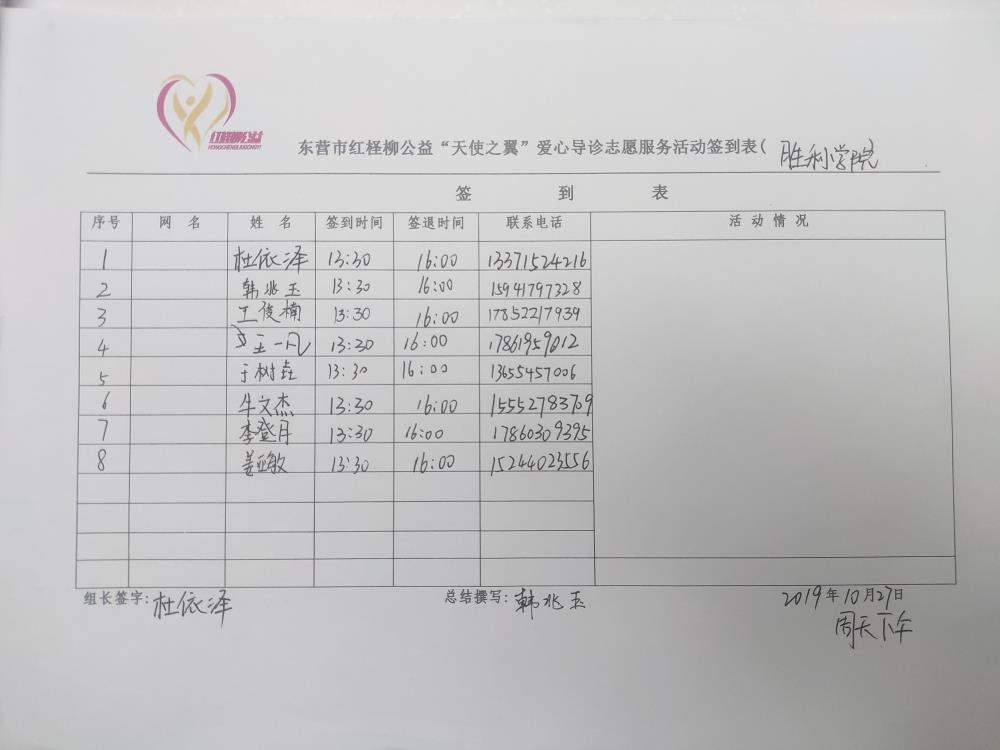 红柽柳公益
HONGCHENGLIUGONGYI
东营市红柽柳公益“天使之翼”爱心导诊志愿服务活动签到表(胜利学院)
签 到 表
序号 网 名 姓 名 签到时间 签退时间 联系电话 活 动 情 况
1 杜依泽 13:30 16:00 13371524216
2 韩兆玉 13:30 16:00 15941797328
3 王俊楠 13:30 16:00 17852217939
4 王一凡 13:30 16:00 17861959012
5 于树垚 13:30 16:00 13655457006
6 牛文杰 13:30 16:00 15552783709
7 李登月 13:30 16:00 17860309395
8 姜亚敏 13:30 16:00 15244023556
组长签字:杜依泽 总结撰写:韩兆玉 2019年10月27日
周天下午